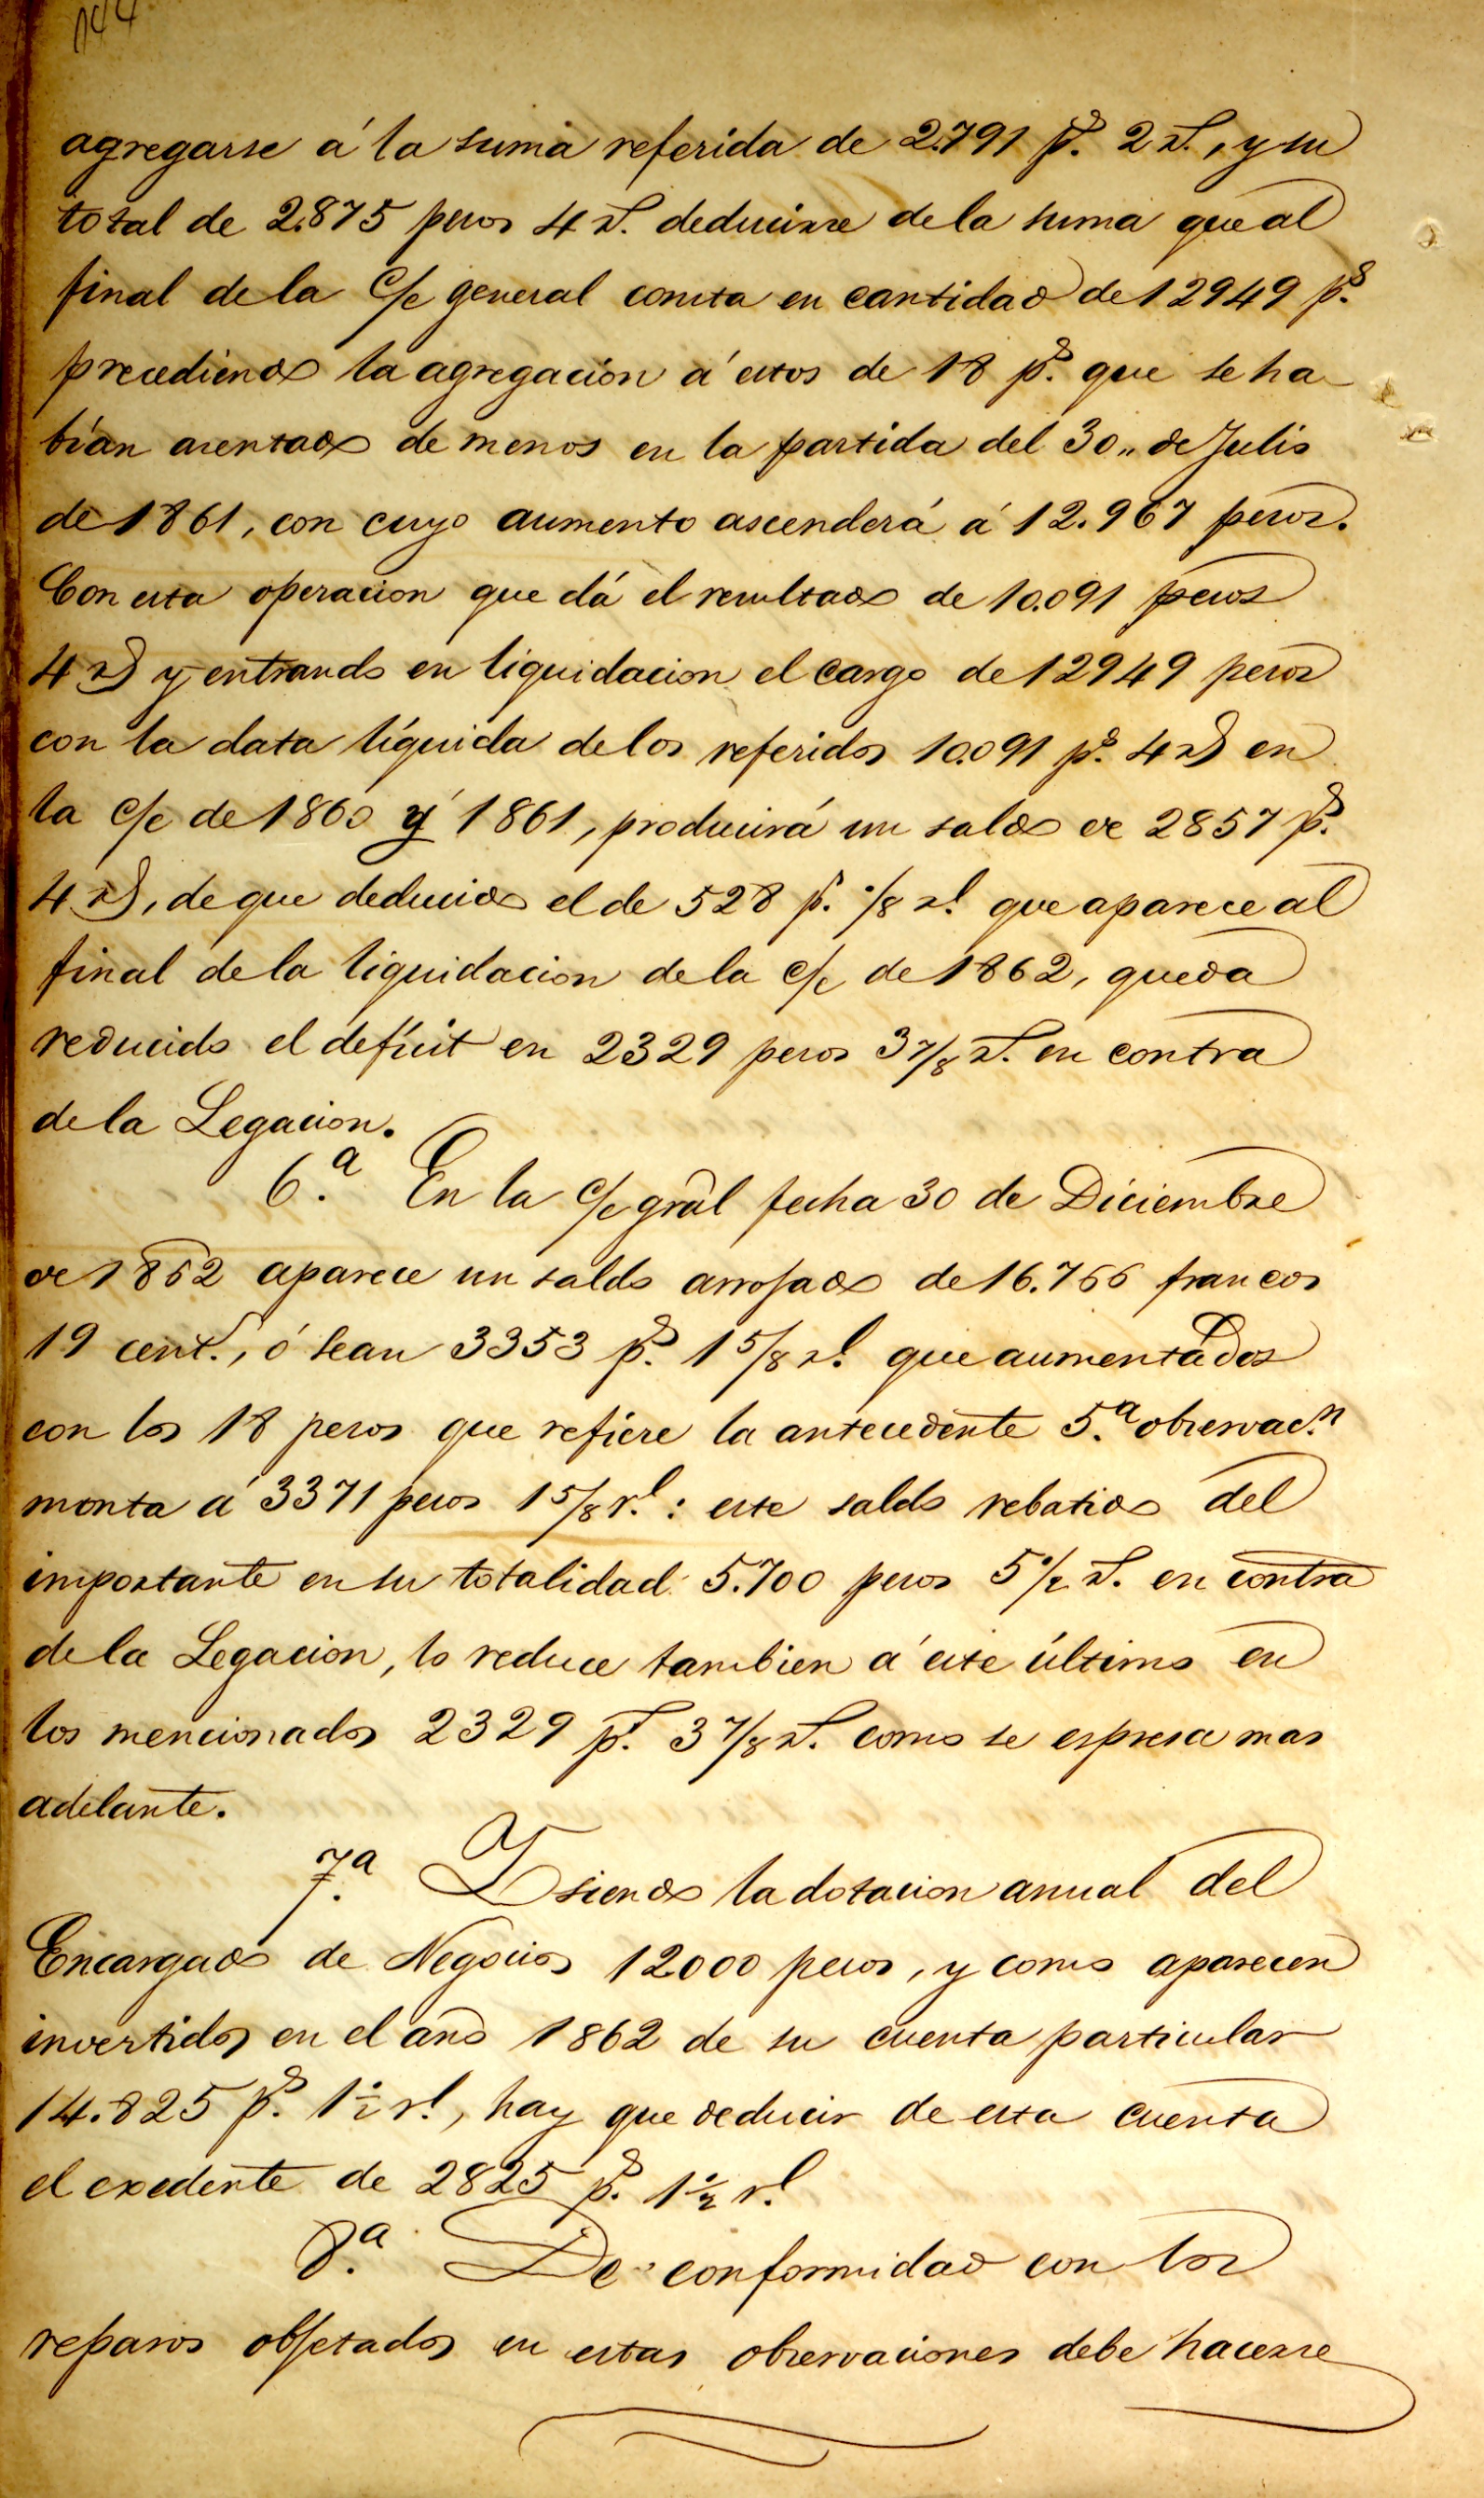 144
agregarse á la suma referida de 2.791 p.s 2 r.s, y su
total de 2.875 pesos 4 r.s deducirse de la suma que al
final de la c/c general consta en cantidad de 12949 p.s
precediendo la agregacion á estos de 18 p.s que se ha-
bían asentado de menos en la partida del 30,, de Julio
de 1861, con cuyo aumento ascenderá á 12.967 pesos.
Con esta operacion que dá el resultado de 10.091 pesos
4 r.s y entrando en liquidacion el cargo de 12949 pesos
con la data líquida de los referidos 10.091 p.s 4 r.s en
la c/c de 1860 y 1861, producirá un saldo de 2857 p.s
4 r.s, de que deducido el de 528 p.s 1/8 r.l que aparece al
final de la liquidacion de la c/c de 1862, queda
reducido el defícit en 2329 pesos 3 7/8 r.s en contra
de la Legacion.
6.a En la c/c gral fecha 30 de Diciembre
de 1862 aparece un saldo arrojado de 16.766 francos
19 cent.s, ó sean 3353 p.s 1 5/8 r.l que aumentados
con los 18 pesos que refiere la antecedente 5.a observac.n
monta á 3371 pesos 1 5/8 r.l: este saldo rebatido del
importante en su totalidad 5.700 pesos 5 1/2 r.s en contra
de la Legacion, lo reduce tambien á este último en
los mencionados 2329 p.s 3 7/8 r.s como se espresa mas
adelante.
7.a Y siendo la dotacion anual del
Encargado de Negocios 12000 pesos, y como aparecen
invertidos en el año 1862 de su cuenta particular
14.825 p.s 1 1/2 r.l, hay que deducir de esta cuenta
el exedente de 2825 p.s 1 1/2 r.l
8.a De conformidad con los
reparos objetados en estas observaciones debe hacerse